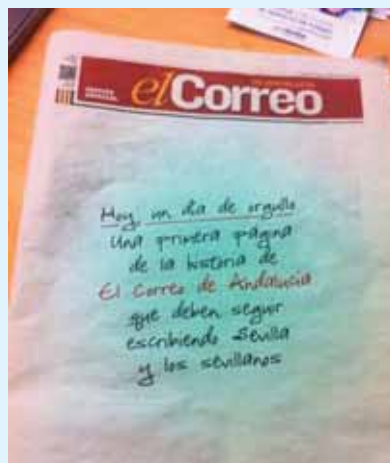 el Correo
Hoy, un día de orgullo
Una primera página
de la historia de
El Correo de Andalucía
que deben seguir
escribiendo Sevilla
y los sevillanos